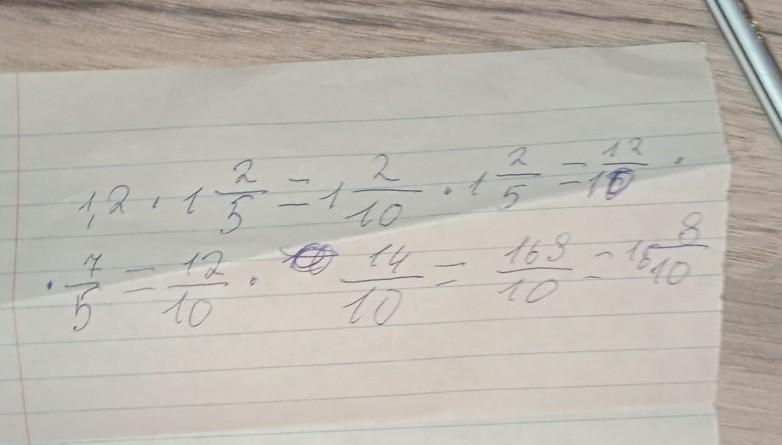 1,2 · 1 2/5 = 1 2/10 · 1 2/5 = 12/10 ·
· 7/5 = 12/10 · 14/10 = 168/10 = 16 8/10